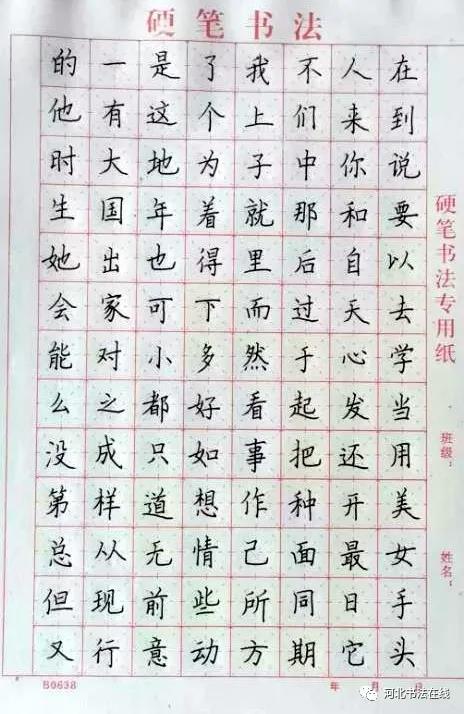 硬笔书法
的一是了我不人在
他有这个上们来到
时大地为子中你说
生国年着就那和要
她出也得里后自以
会家可下而过天去
能对小多然于心学
么之都好看起发当
没成只如事把还用
第样道想作种开美
总从无情己面最女
但现前些所同日手
又行意动方期它头
硬笔书法专用纸
班级：
姓名：
B0638
年 月 日
河北书法在线